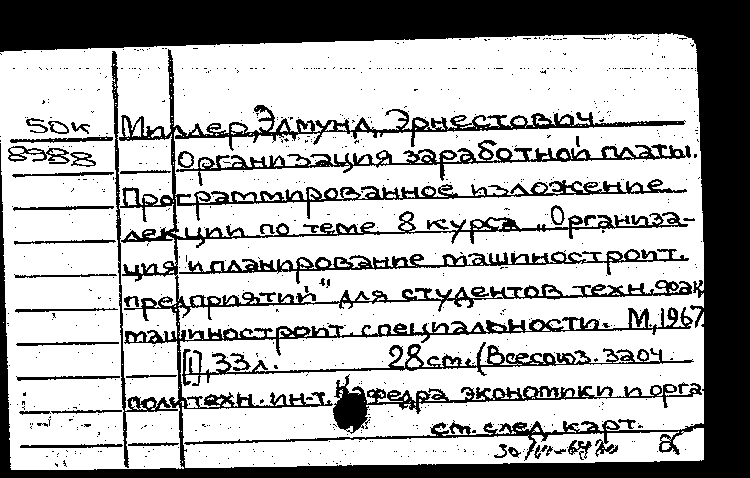 50к Миллер, Эдмунд Эрнестович.
8988 Организация заработной платы.
Программированное изложение
лекции по теме 8 курса „Организа-
ция и планирование машиностроит.
предприятий" для студентов техн. фак.
машиностроит. специальности. М, 1967.
[1], 33 л. 28 см. (Всесоюз. заоч.
политехн. ин-т. Кафедра экономики и орга
см. след. карт.